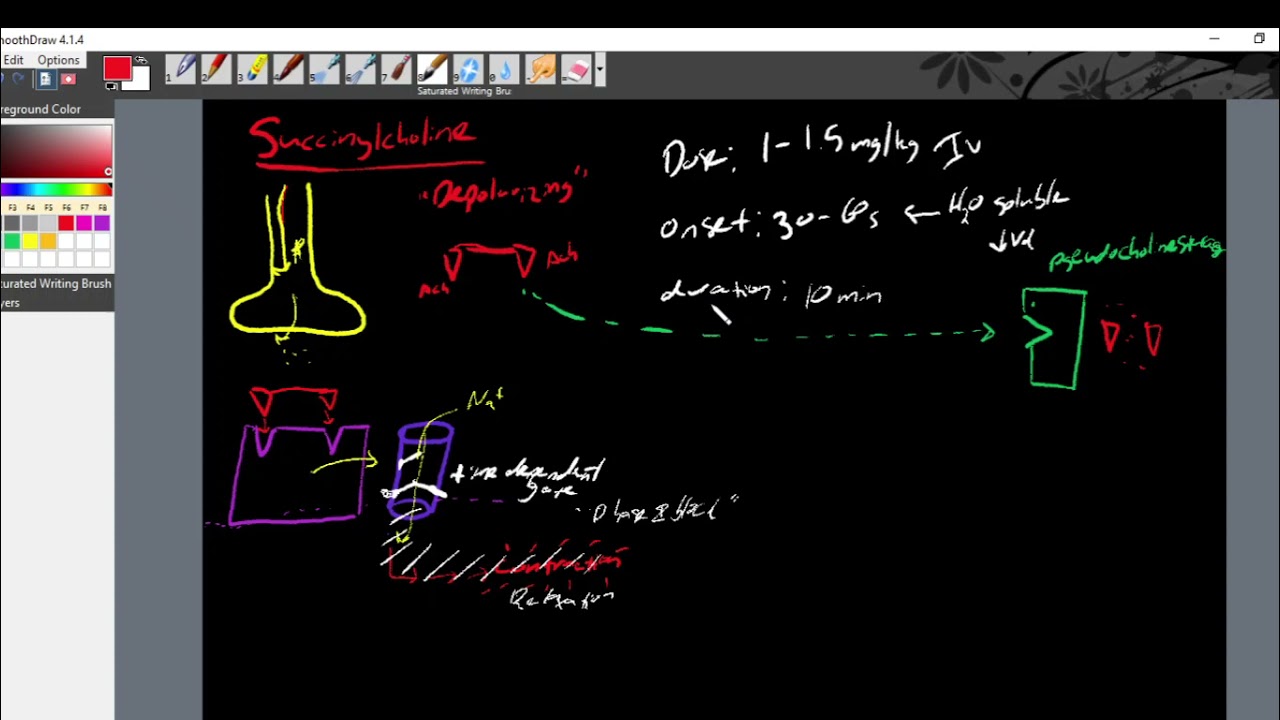 moothDraw 4.1.4
Edit Options
1 2 3 4 5 6 7 8 9 0
Saturated Writing Bru
oreground Color
F3 F4 F5 F6 F7 F8
aturated Writing Brush
yers
Succinylcholine
"Depolarizing"
Ach
Ach
Dose: 1-1.5 mg/kg IV
onset: 30-60s ← H2O soluble
↓Vd
duration: 10 min
Na+
time dependent
gate
Contraction
Relaxation